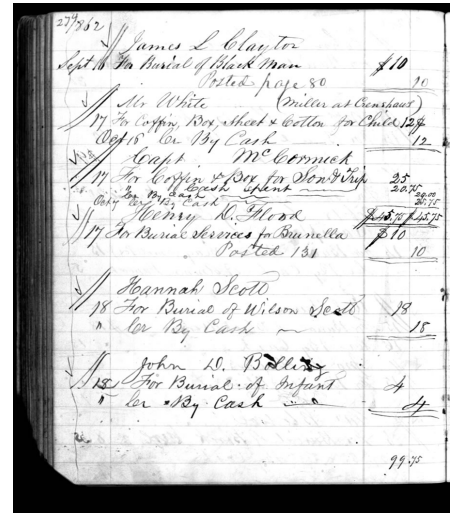 279 1862
James L Clayton
Sept 16 For Burial of Black Man $10
Posted page 80 10
Mr White (Miller at Crenshaws)
17 For Coffin, Box, Sheet & Cotton for Child 12
Oct 15 Cr By Cash 12
Capt McCormick
17 For Coffin & Box for Son & Trip 25
" Cash spent 20.75
Cr By Cash 20.00
Octy Cr By Cash 25.75
Henry D. Flood $45.75 $45.75
17 For Burial Services for Brunella $10
Posted 131 10
Hannah Scott
18 For Burial of Wilson Scott 18
" Cr By Cash 18
John D. Bolling
18 For Burial of Infant 4
" Cr By Cash 4
99.75